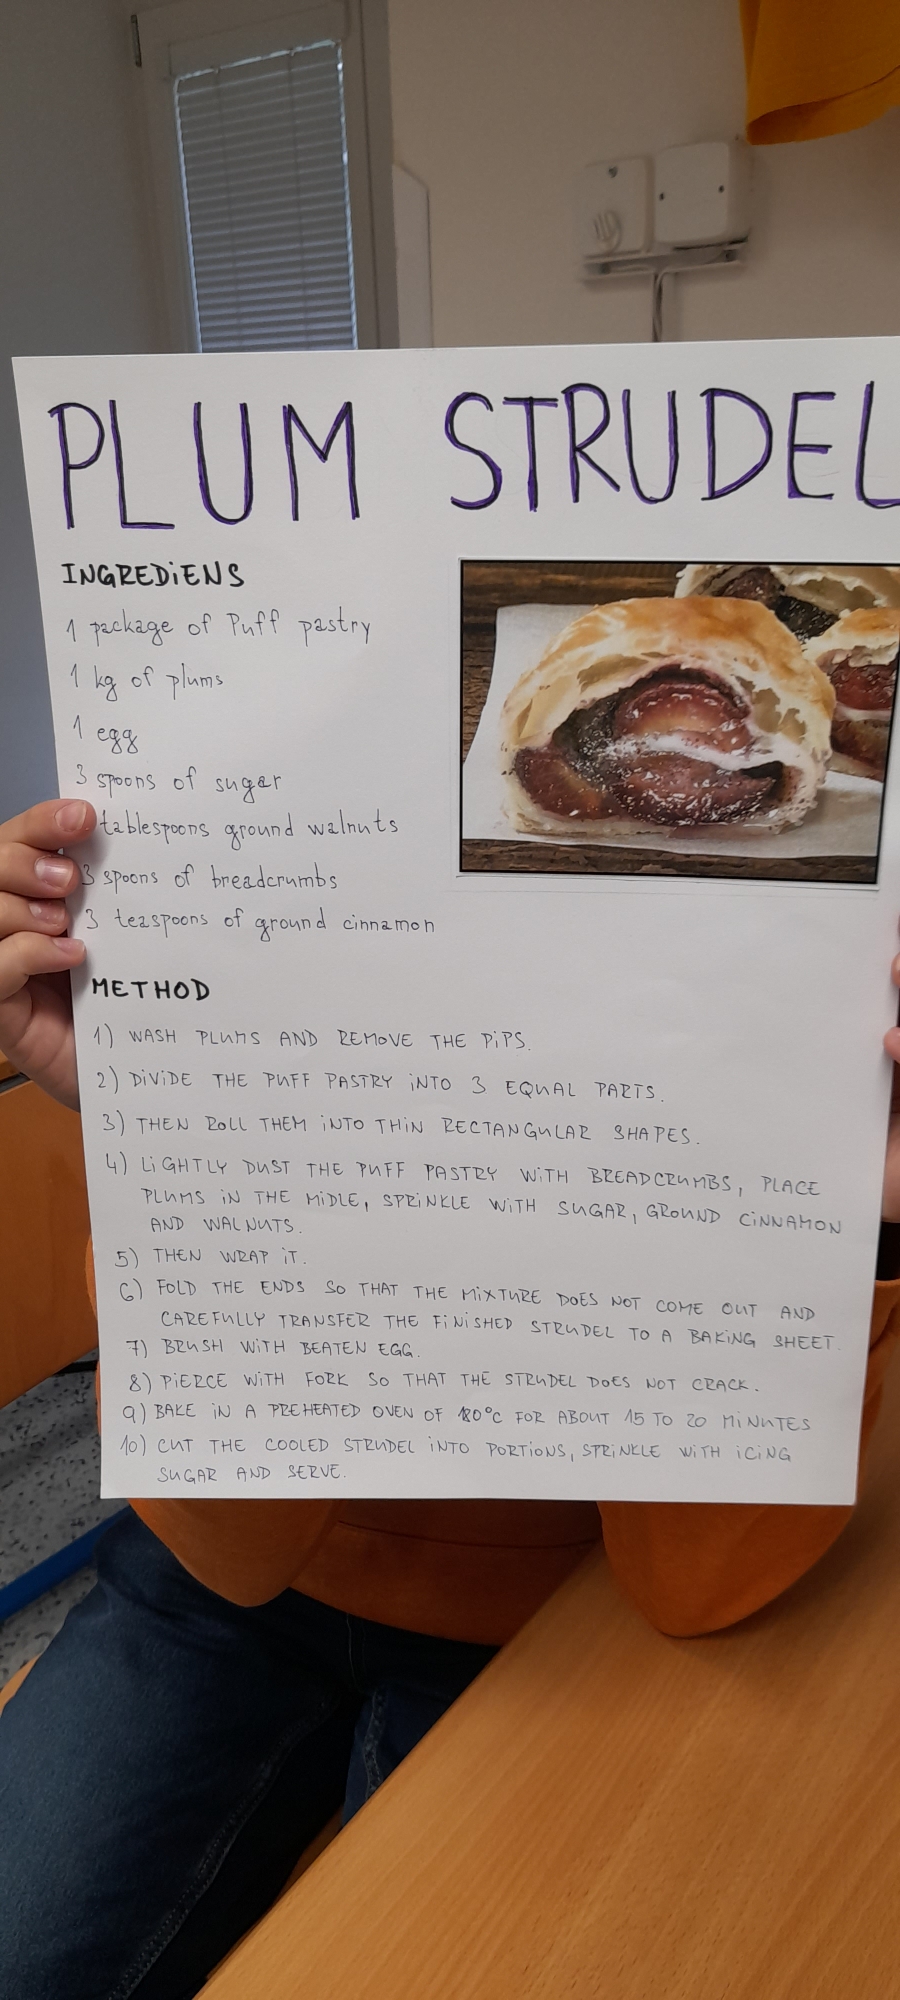 PLUM STRUDEL
INGREDiENS
1 package of Puff pastry
1 kg of plums
1 egg
3 spoons of sugar
tablespoons ground walnuts
3 spoons of breadcrumbs
3 teaspoons of ground cinnamon
METHOD
1) WASH PLUMS AND REMOVE THE PiPS.
2) DiViDE THE PUFF PASTRY iNTO 3 EQUAL PARTS.
3) THEN ROLL THEM iNTO THiN RECTANGULAR SHAPES.
4) LiGHTLY DUST THE PUFF PASTRY WiTH BREADCRUMBS, PLACE
PLUMS iN THE MiDLE, SPRiNKLE WiTH SUGAR, GROUND CiNNAMON
AND WALNUTS.
5) THEN WRAP iT.
6) FOLD THE ENDS SO THAT THE MiXTURE DOES NOT COME OUT AND
CAREFULLY TRANSFER THE FiNiSHED STRUDEL TO A BAKiNG SHEET.
7) BRUSH WiTH BEATEN EGG.
8) PiERCE WiTH FORK SO THAT THE STRUDEL DOES NOT CRACK.
9) BAKE iN A PREHEATED OVEN OF 180°C FOR ABOUT 15 TO 20 MiNUTES
10) CUT THE COOLED STRUDEL iNTO PORTiONS, SPRiNKLE WiTH iCiNG
SUGAR AND SERVE.